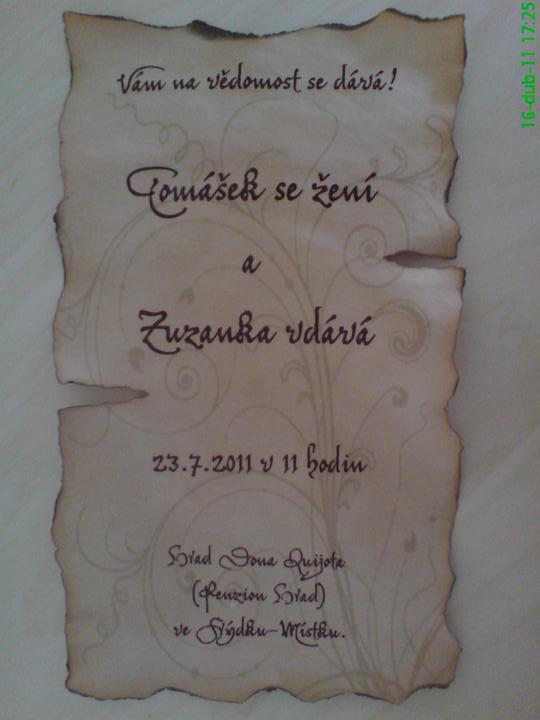 Vám na vědomost se dává!
Tomášek se žení
a
Zuzanka vdává
23.7.2011 v 11 hodin
Hrad Dona Quijota
(Penzion Hrad)
ve Frýdku-Místku.
16-dub-11 17:25